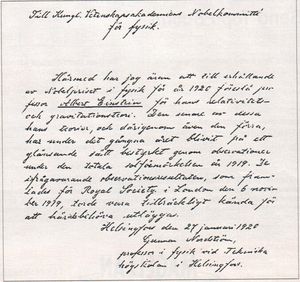 Till Kungl. Vetenskapsakademiens Nobelkommitté
för fysik.
Härmed har jag äran att till erhållande
av Nobelpriset i fysik för år 1920 föreslå pro-
fessor Albert Einstein för hans relativitets-
och gravitationsteori. Den senare av dessa
hans teorier, och därigenom även den förra,
har under det gångna året blivit på ett
glänsande sätt bestyrkt genom observationer
under den totala solförmörkelsen år 1919. De
ifrågavarande observationsresultaten, som fram-
lades för Royal Society i London den 6 novem-
ber 1919, torde vara tillräckligt kända för
att härstädes utläggas.
Helsingfors den 27 januari 1920
Gunnar Nordström,
professor i fysik vid Tekniska
högskolan i Helsingfors.